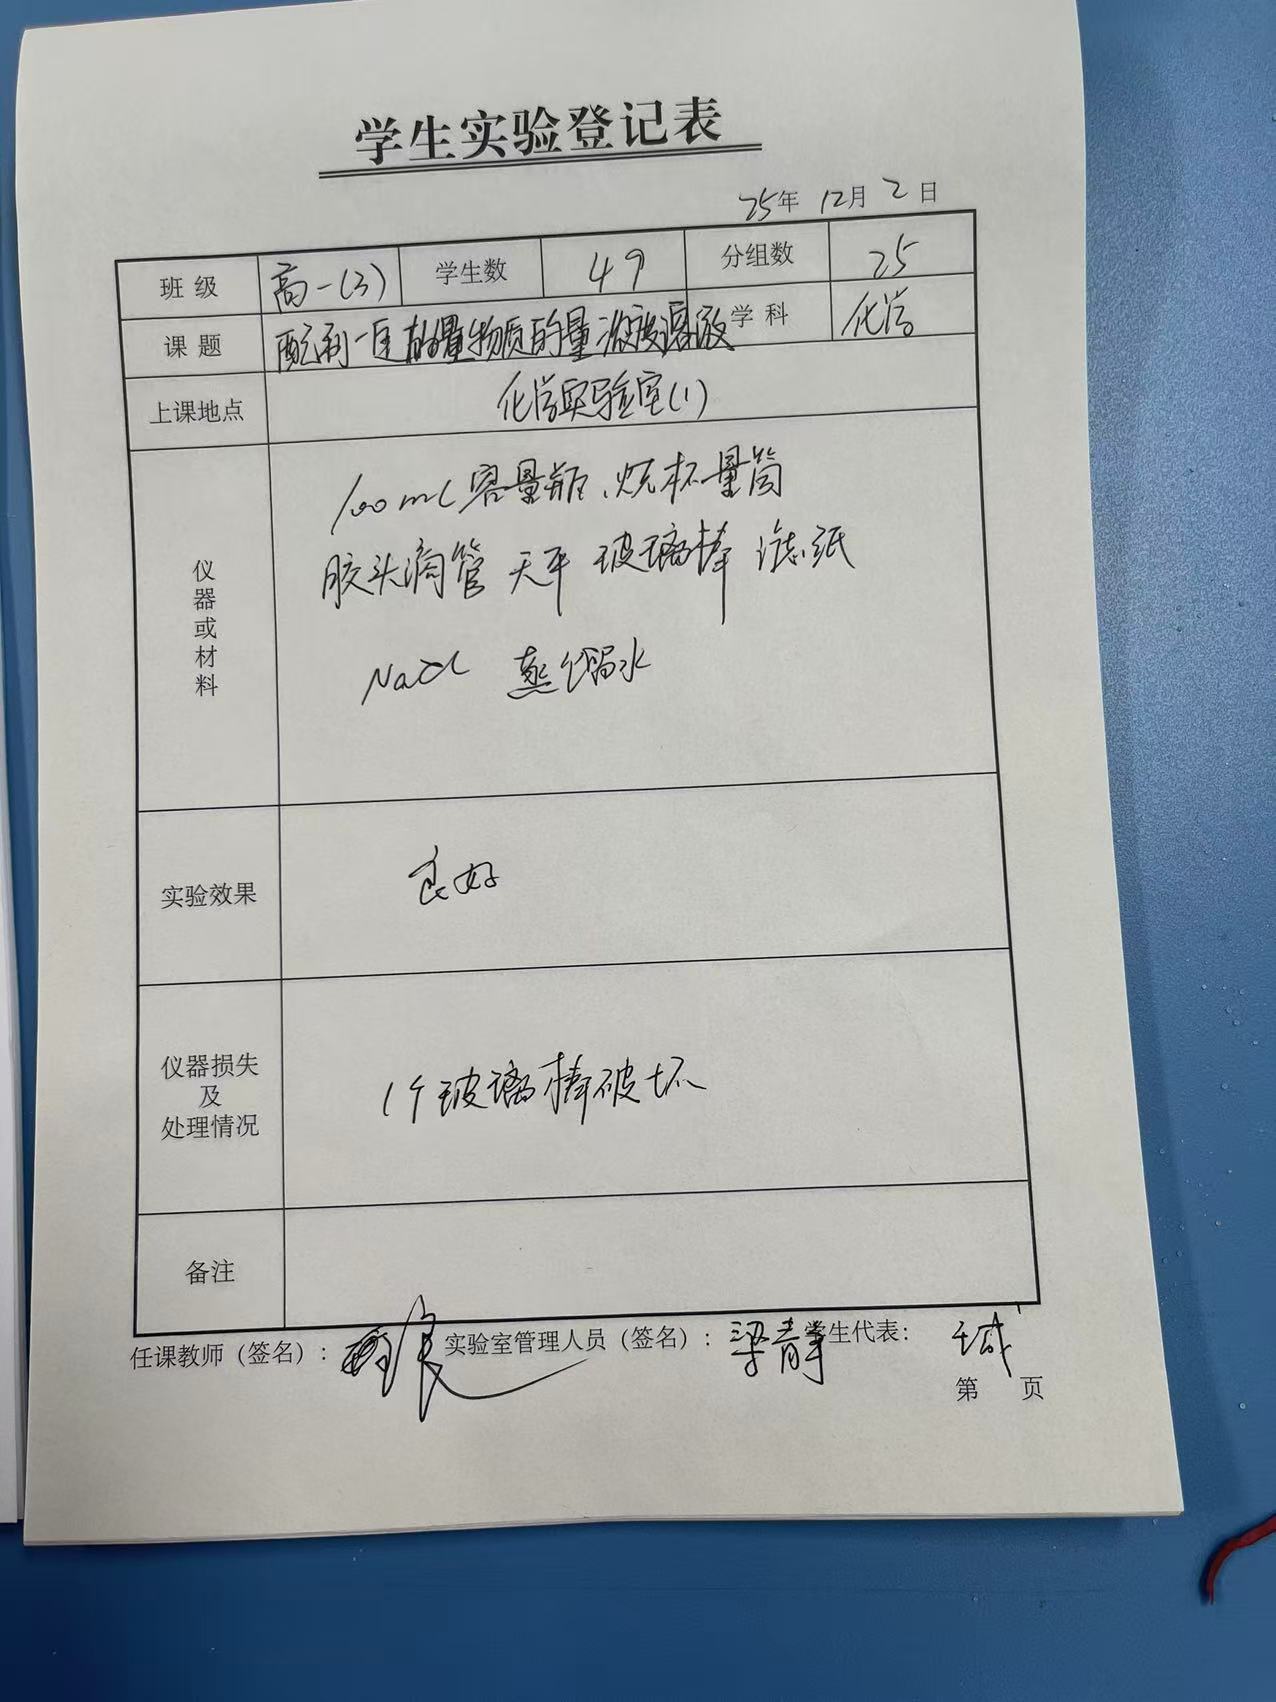 学生实验登记表
25年 12月 2日
班级 高一(3) 学生数 49 分组数 25
课题 配制一定物质的量浓度溶液 学科 化学
上课地点 化学实验室(1)
仪器或材料
100mL容量瓶、烧杯 量筒
胶头滴管 天平 玻璃棒 滤纸
NaCl 蒸馏水
实验效果 良好
仪器损失
及
处理情况
1个玻璃棒破坏
备注
任课教师（签名）： 实验室管理人员（签名）：梁青 学生代表：
第 页